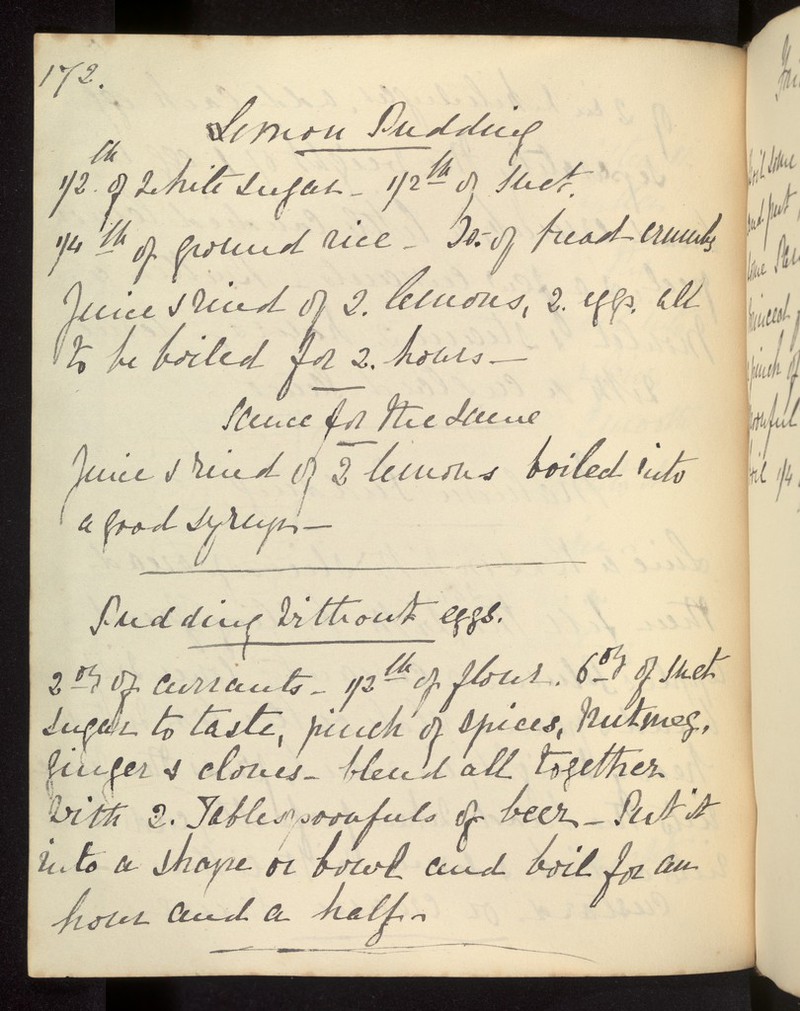 172.
Lemon Pudding
1/2 th of White Sugar - 1/2 th of Suet.
1/4 th of ground rice - Do. of bread crumbs
Juice & rind of 2. lemons, 2. eggs. all
to be boiled for 2. hours -
Sauce for the Same
Juice & rind of 2 lemons boiled into
a good Syrup -
Pudding Without eggs.
2 oz of currants - 1/2 th of flour. 6 oz of Suet
Sugar to taste, pinch of spices, Nutmeg,
Ginger & cloves - blend all together
With 2. Tablespoonfuls of beer - Put it
into a Shape or bowl and boil for an
hour and a half -
boil some
and put
pinch of